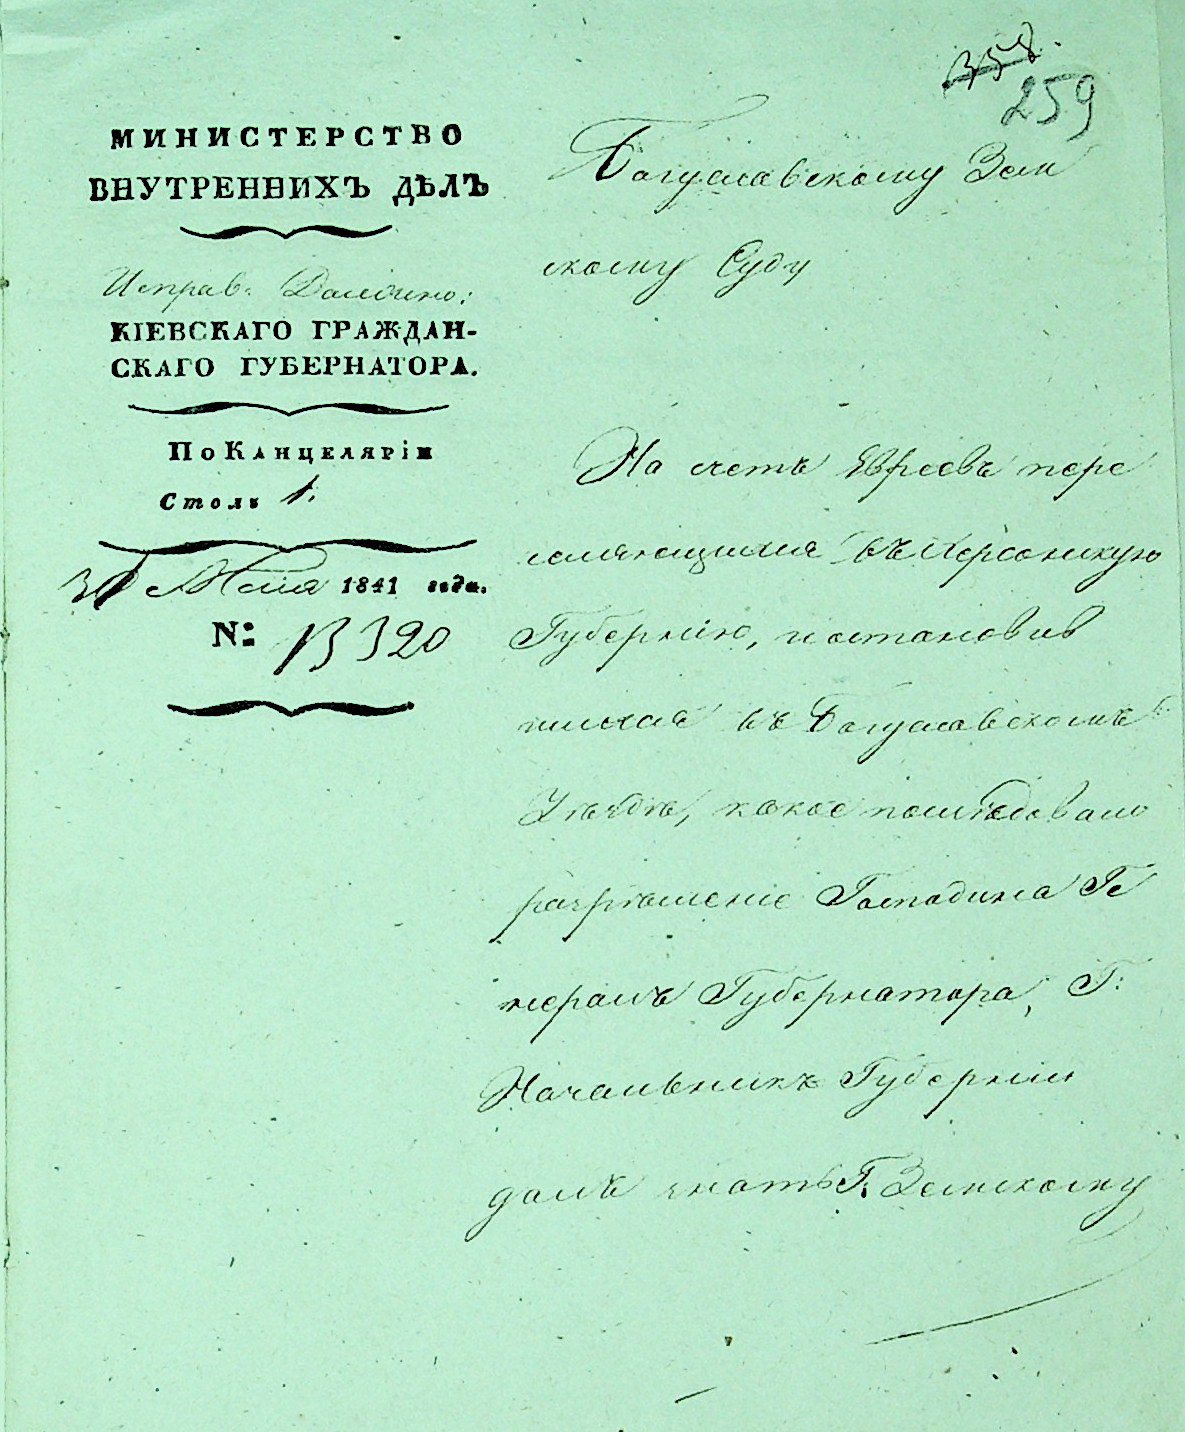 358.
259
МИНИСТЕРСТВО
ВНУТРЕННИХЪ ДѢЛЪ
Исправ: Должно:
КІЕВСКАГО ГРАЖДАН-
СКАГО ГУБЕРНАТОРА.
По Канцеляріи
Столъ 1.
31 Мая 1841 года.
N: 13320
Богуславскому Зем
скому Суду
На счетъ Евреевъ пере
селяющихся въ Херсонскую
Губернію, и остановив
шихся въ Богуславскомъ
Уѣздѣ, какое послѣдовало
разрѣшеніе Господина Ге
нералъ Губернатора, Г:
Начальникъ Губерніи
далъ знать Г. Земскому